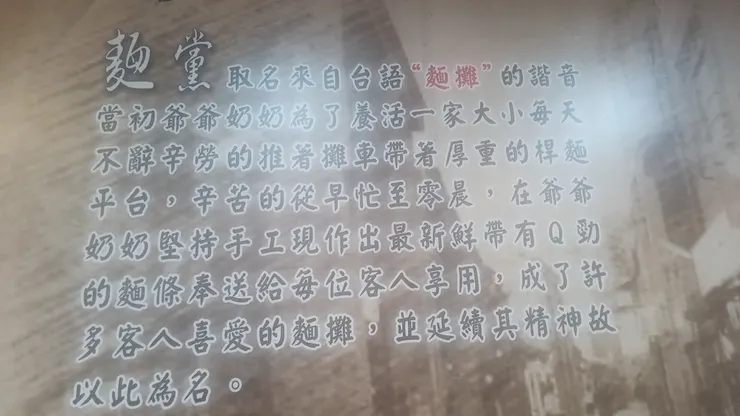 麵黨取名來自台語“麵攤”的諧音
當初爺爺奶奶為了養活一家大小每天
不辭辛勞的推著攤車帶著厚重的桿麵
平台，辛苦的從早忙至零晨，在爺爺
奶奶堅持手工現作出最新鮮帶有Q勁
的麵條奉送給每位客人享用，成了許
多客人喜愛的麵攤，並延續其精神故
以此為名。